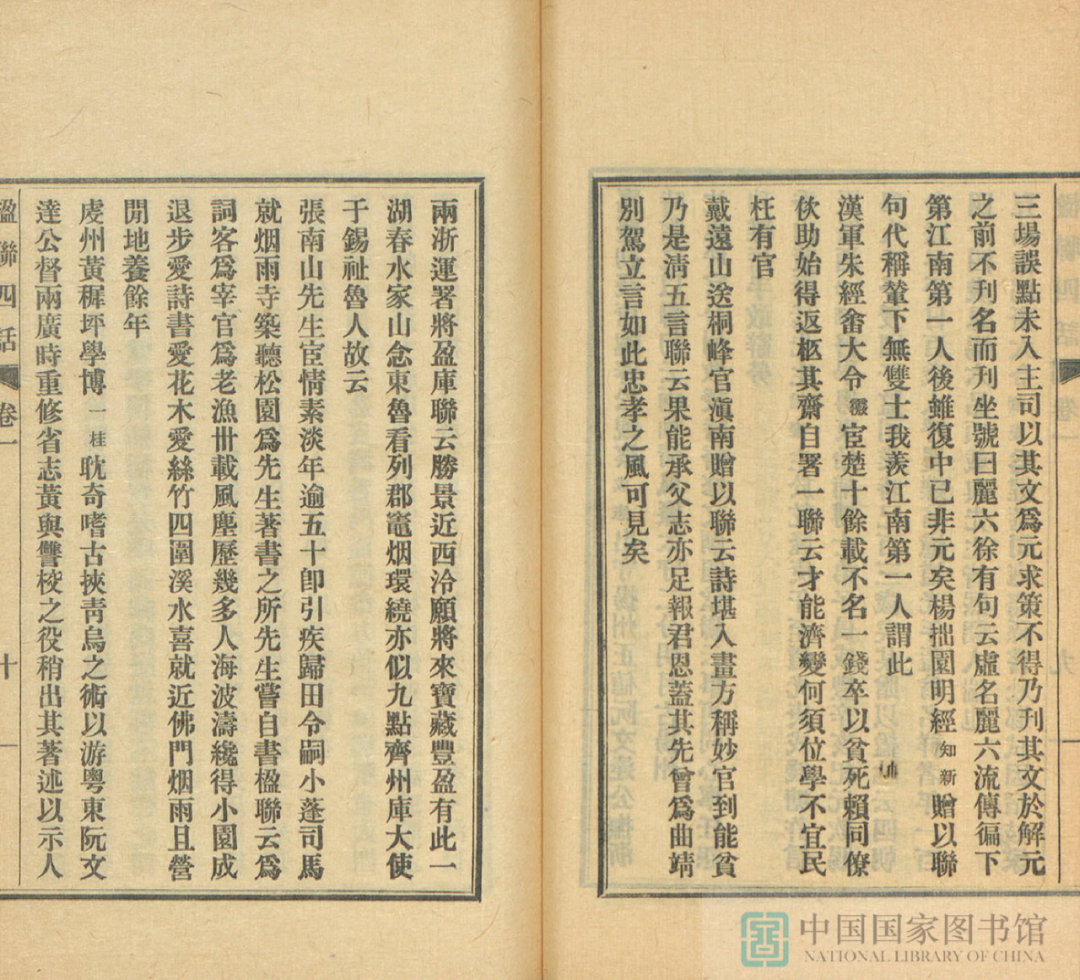 三場誤點未入主司以其文爲元求策不得乃刊其文於解元
之前不刊名而刊坐號曰麗六徐有句云虛名麗六流傳徧下
第江南第一人後雖復中已非元矣楊拙園明經知新贈以聯
句代稱輦下無雙士我羨江南第一人謂此
漢軍朱經畬大令 宦楚十餘載不名一錢卒以貧死賴同僚
佽助始得返柩其齋自署一聯云才能濟變何須位學不宜民
枉有官
戴遠山送桐峰官滇南贈以聯云詩堪入畫方稱妙官到能貧
乃是淸五言聯云果能承父志亦足報君恩蓋其先曾爲曲靖
別駕立言如此忠孝之風可見矣
兩浙運署將盈庫聯云勝景近西泠願將來寶藏豐盈有此一
湖春水家山念東魯看列郡竈烟環繞亦似九點齊州庫大使
于錫祉魯人故云
張南山先生宦情素淡年逾五十卽引疾歸田令嗣小蓬司馬
就烟雨寺築聽松園爲先生著書之所先生嘗自書楹聯云爲
詞客爲宰官爲老漁卅載風塵歷幾多人海波濤纔得小園成
退步愛詩書愛花木愛絲竹四圍溪水喜就近佛門烟雨且營
閒地養餘年
虔州黃穉坪學博一桂耽奇嗜古挾靑烏之術以游粵東阮文
達公督兩廣時重修省志黃與讐校之役稍出其著述以示人
楹聯四話 卷一 十一
中国国家图书馆
NATIONAL LIBRARY OF CHINA